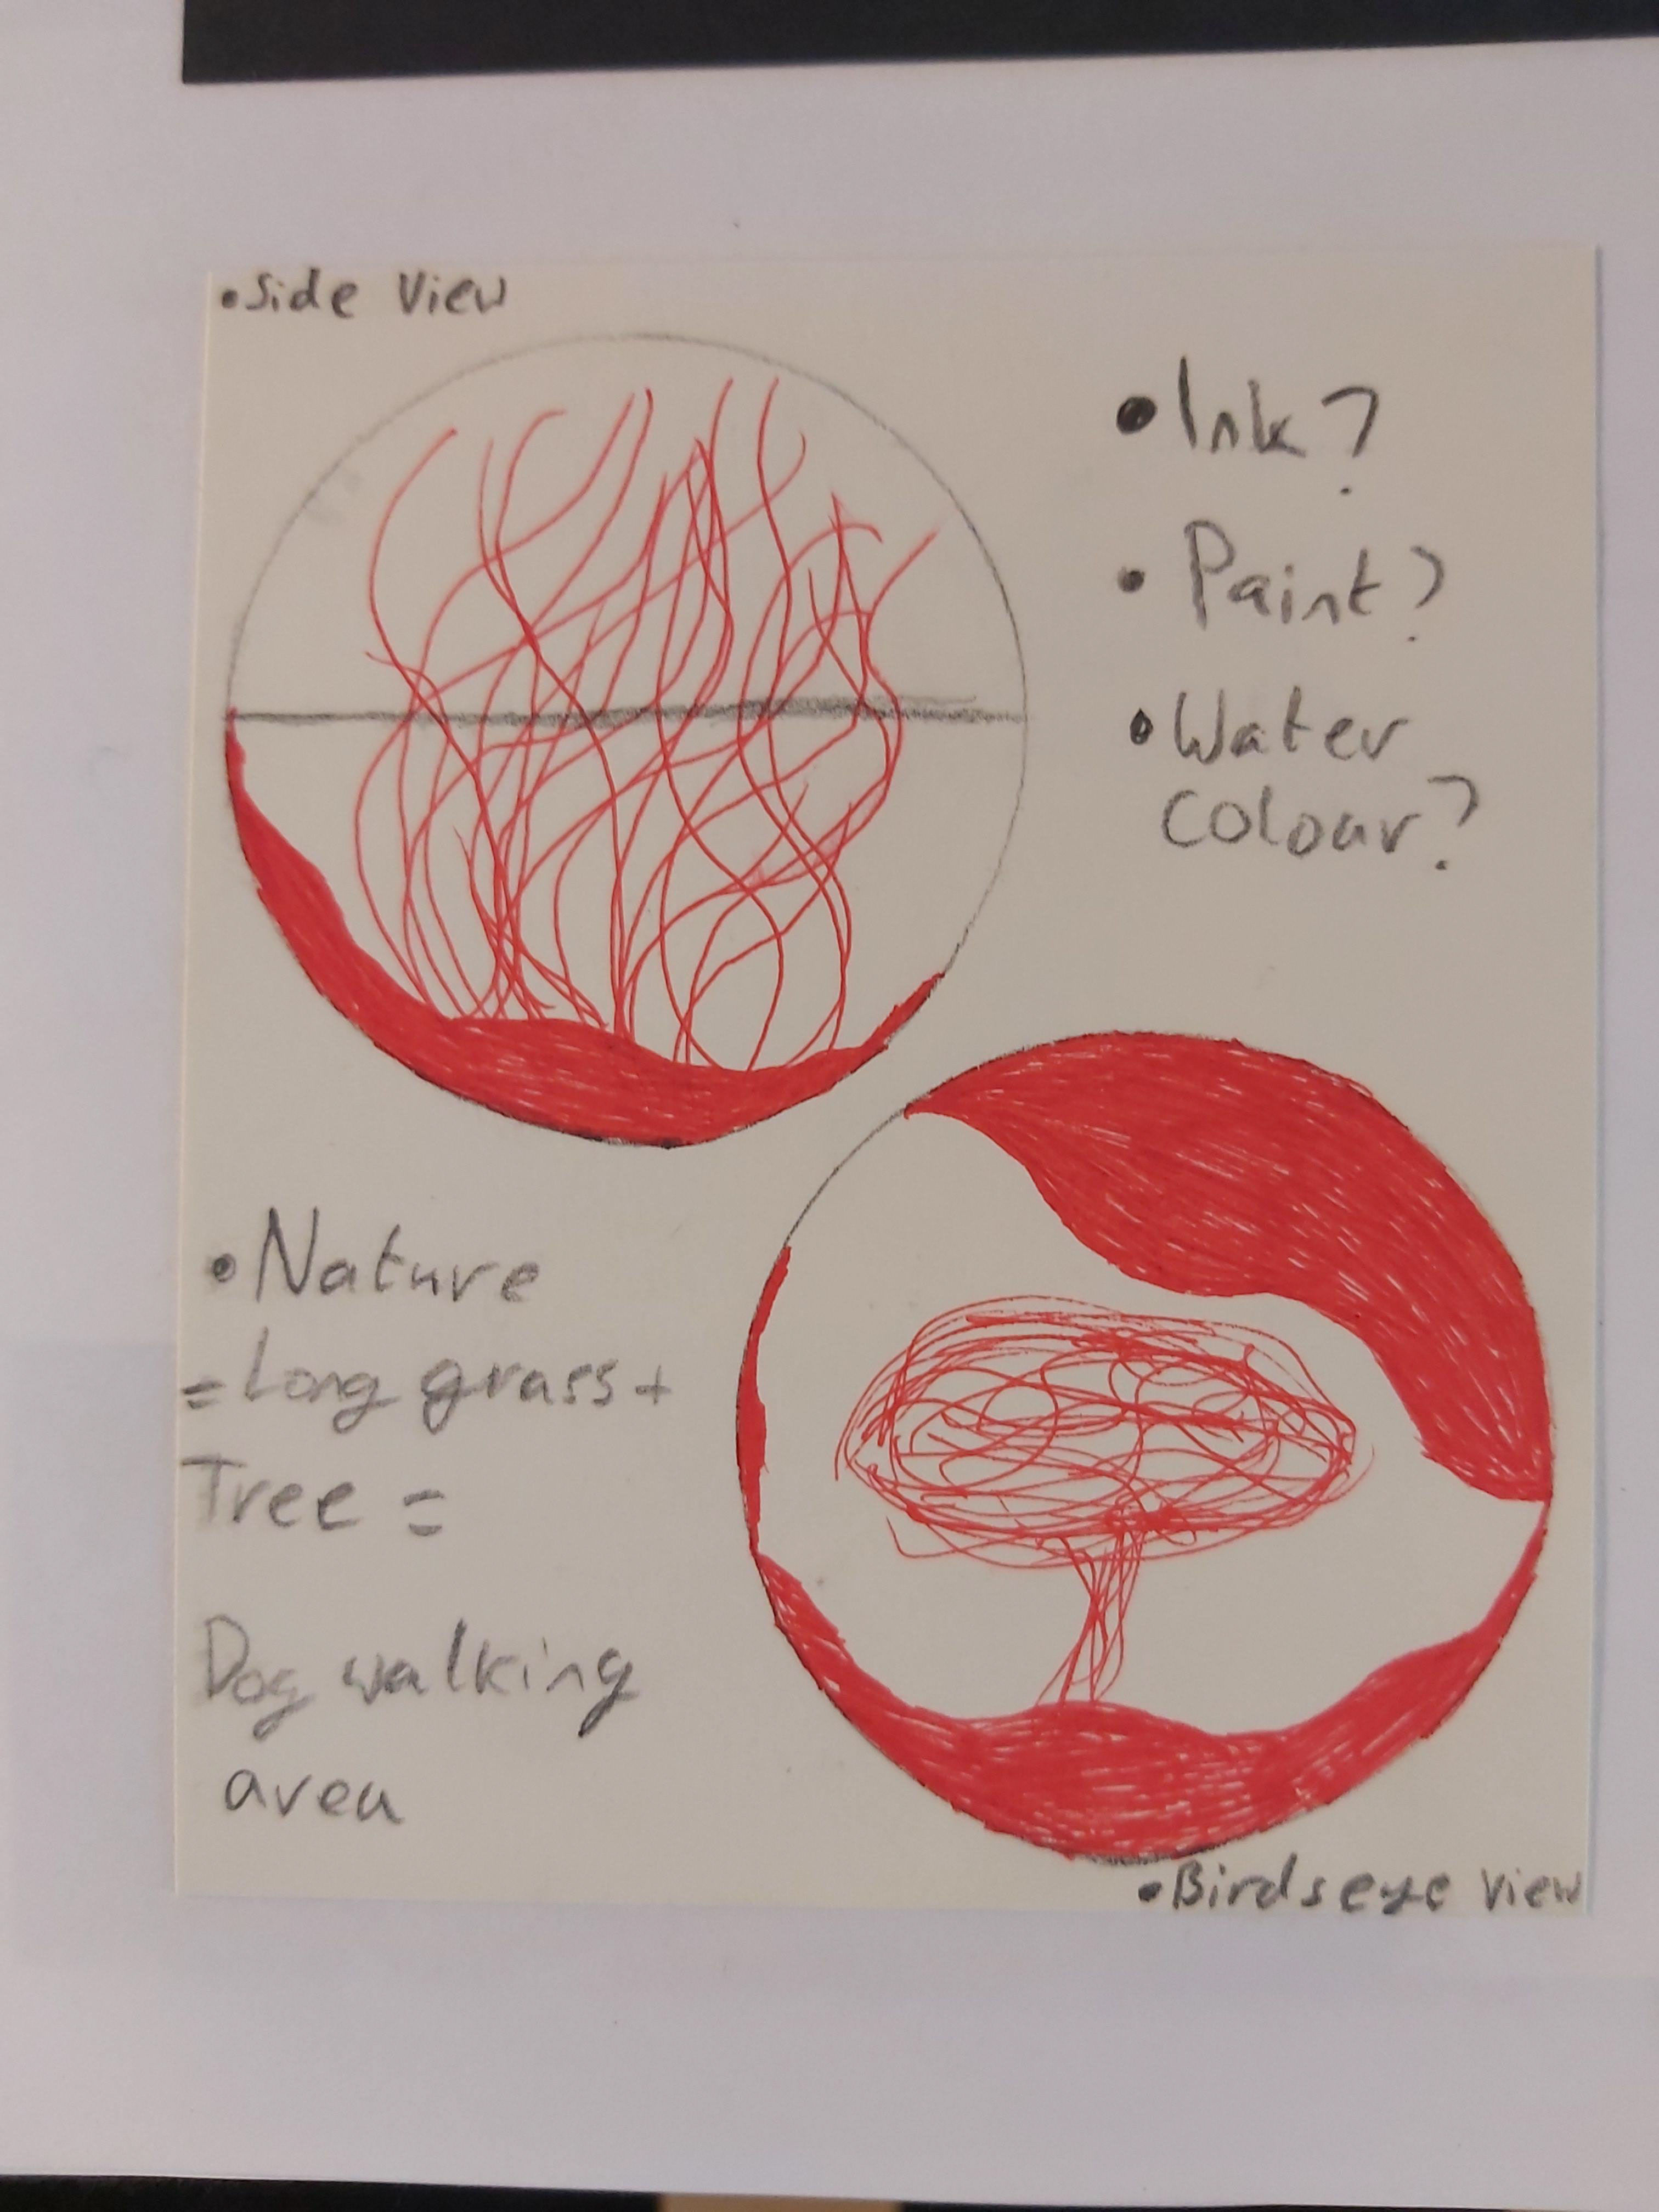 •Side View
•Ink?
•Paint?
•Water
Colour?
•Nature
=Long grass+
Tree =
Dog walking
area
•Birdseye View